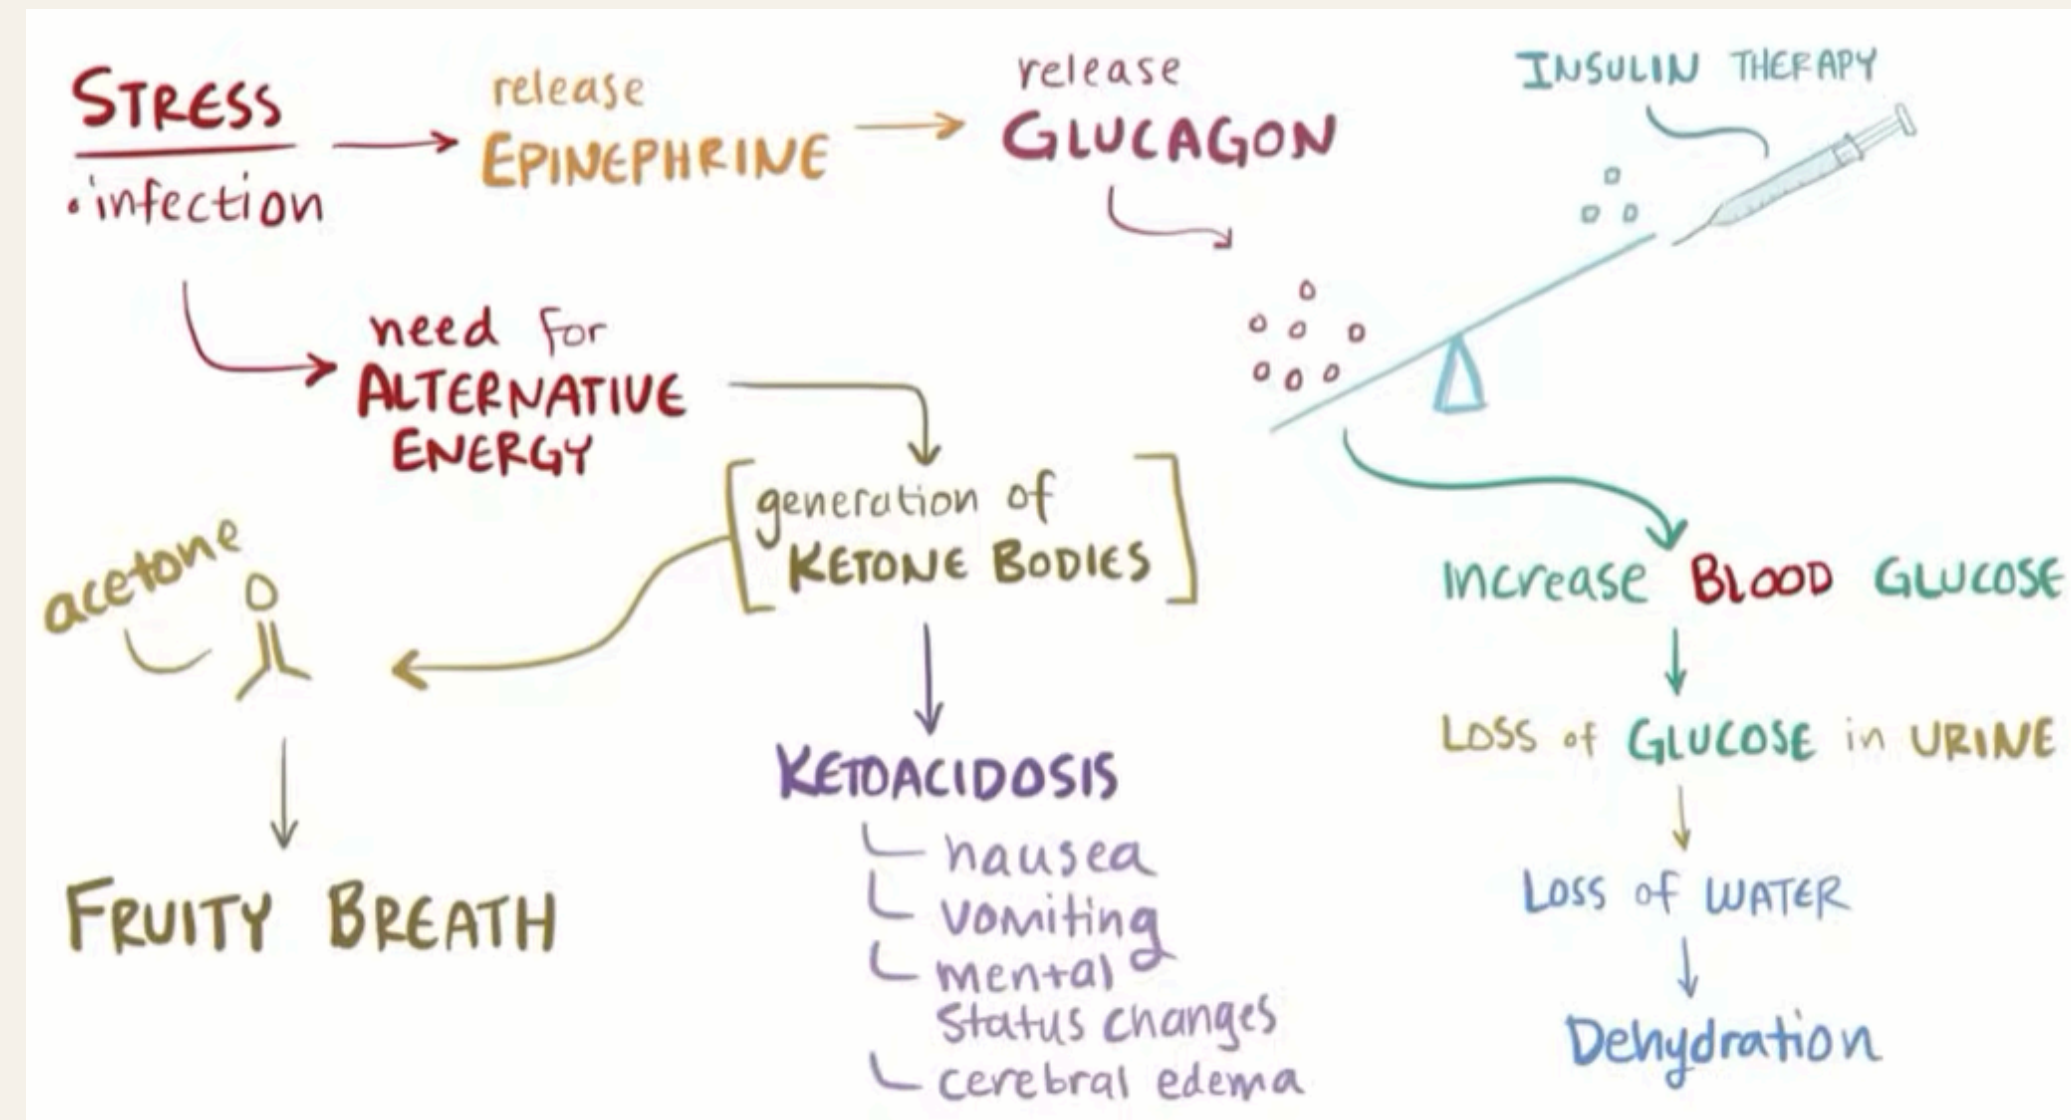 STRESS
• infection
release
EPINEPHRINE
release
GLUCAGON
INSULIN THERAPY
need for
ALTERNATIVE
ENERGY
generation of
KETONE BODIES
acetone
O
FRUITY BREATH
KETOACIDOSIS
nausea
vomiting
mental
status changes
cerebral edema
Increase BLOOD GLUCOSE
LOSS of GLUCOSE in URINE
LOSS of WATER
Dehydration